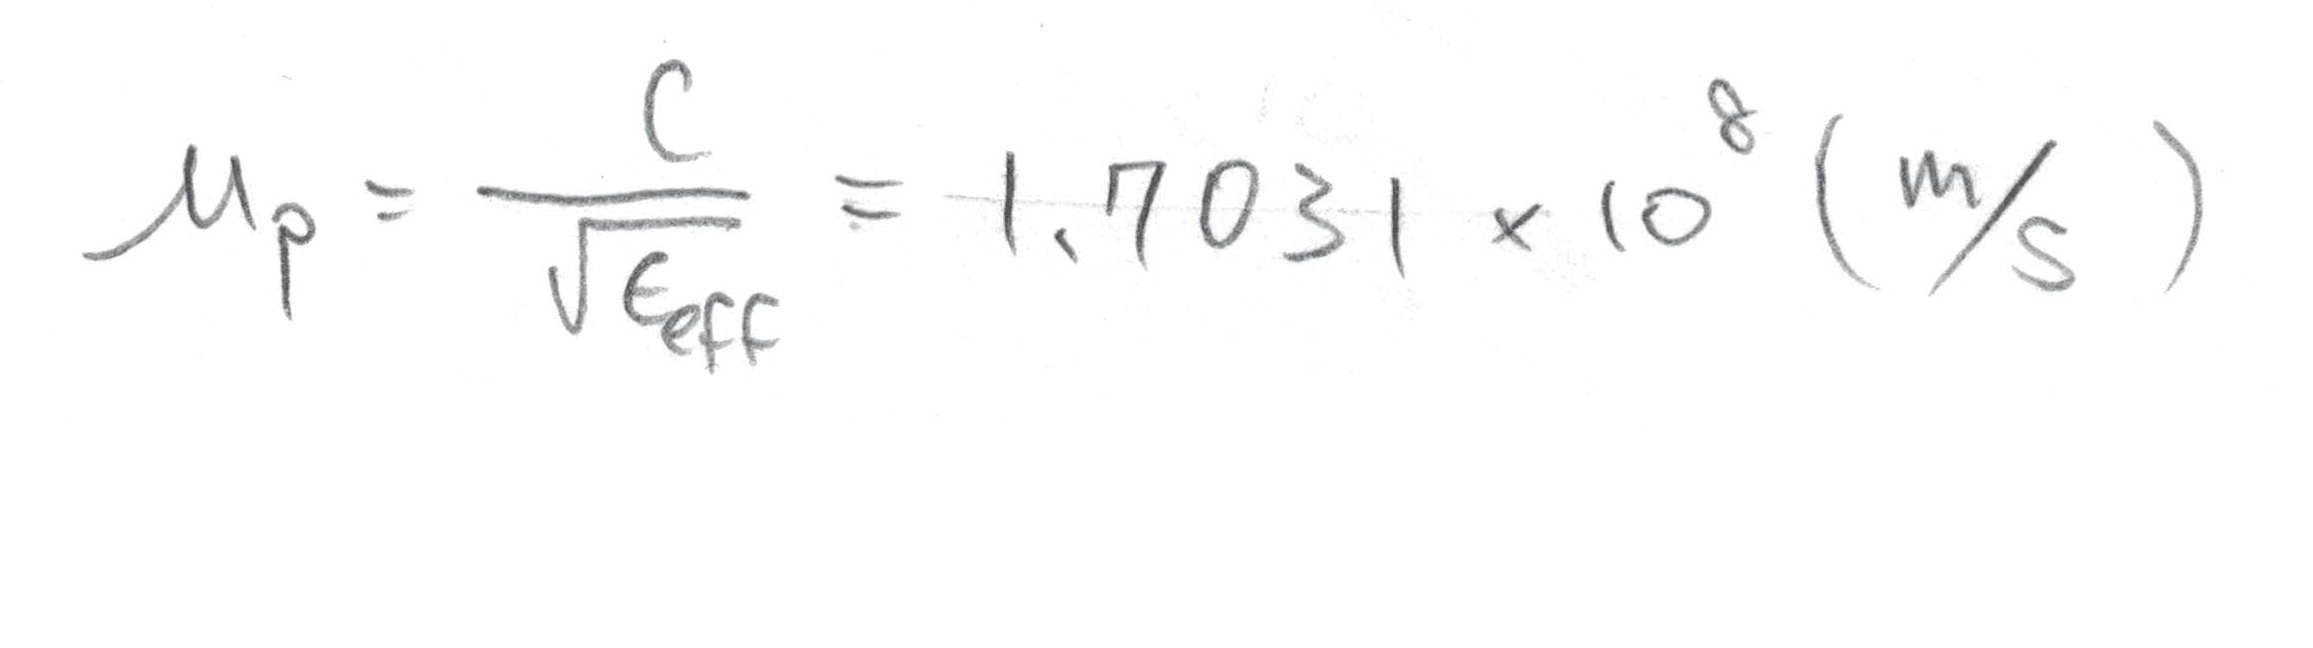 μp = C/√ϵeff = 1.7031 × 10^8 (m/s)